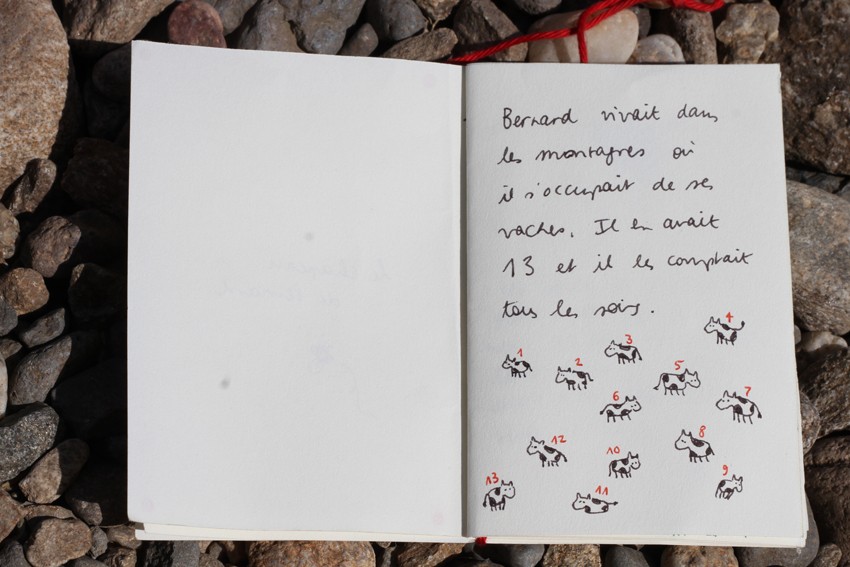 Bernard vivait dans
les montagnes où
il s'occupait de ses
vaches. Il en avait
13 et il les comptait
tous les soirs.
4
3
1
2
5
6
7
8
12
10
9
13
11